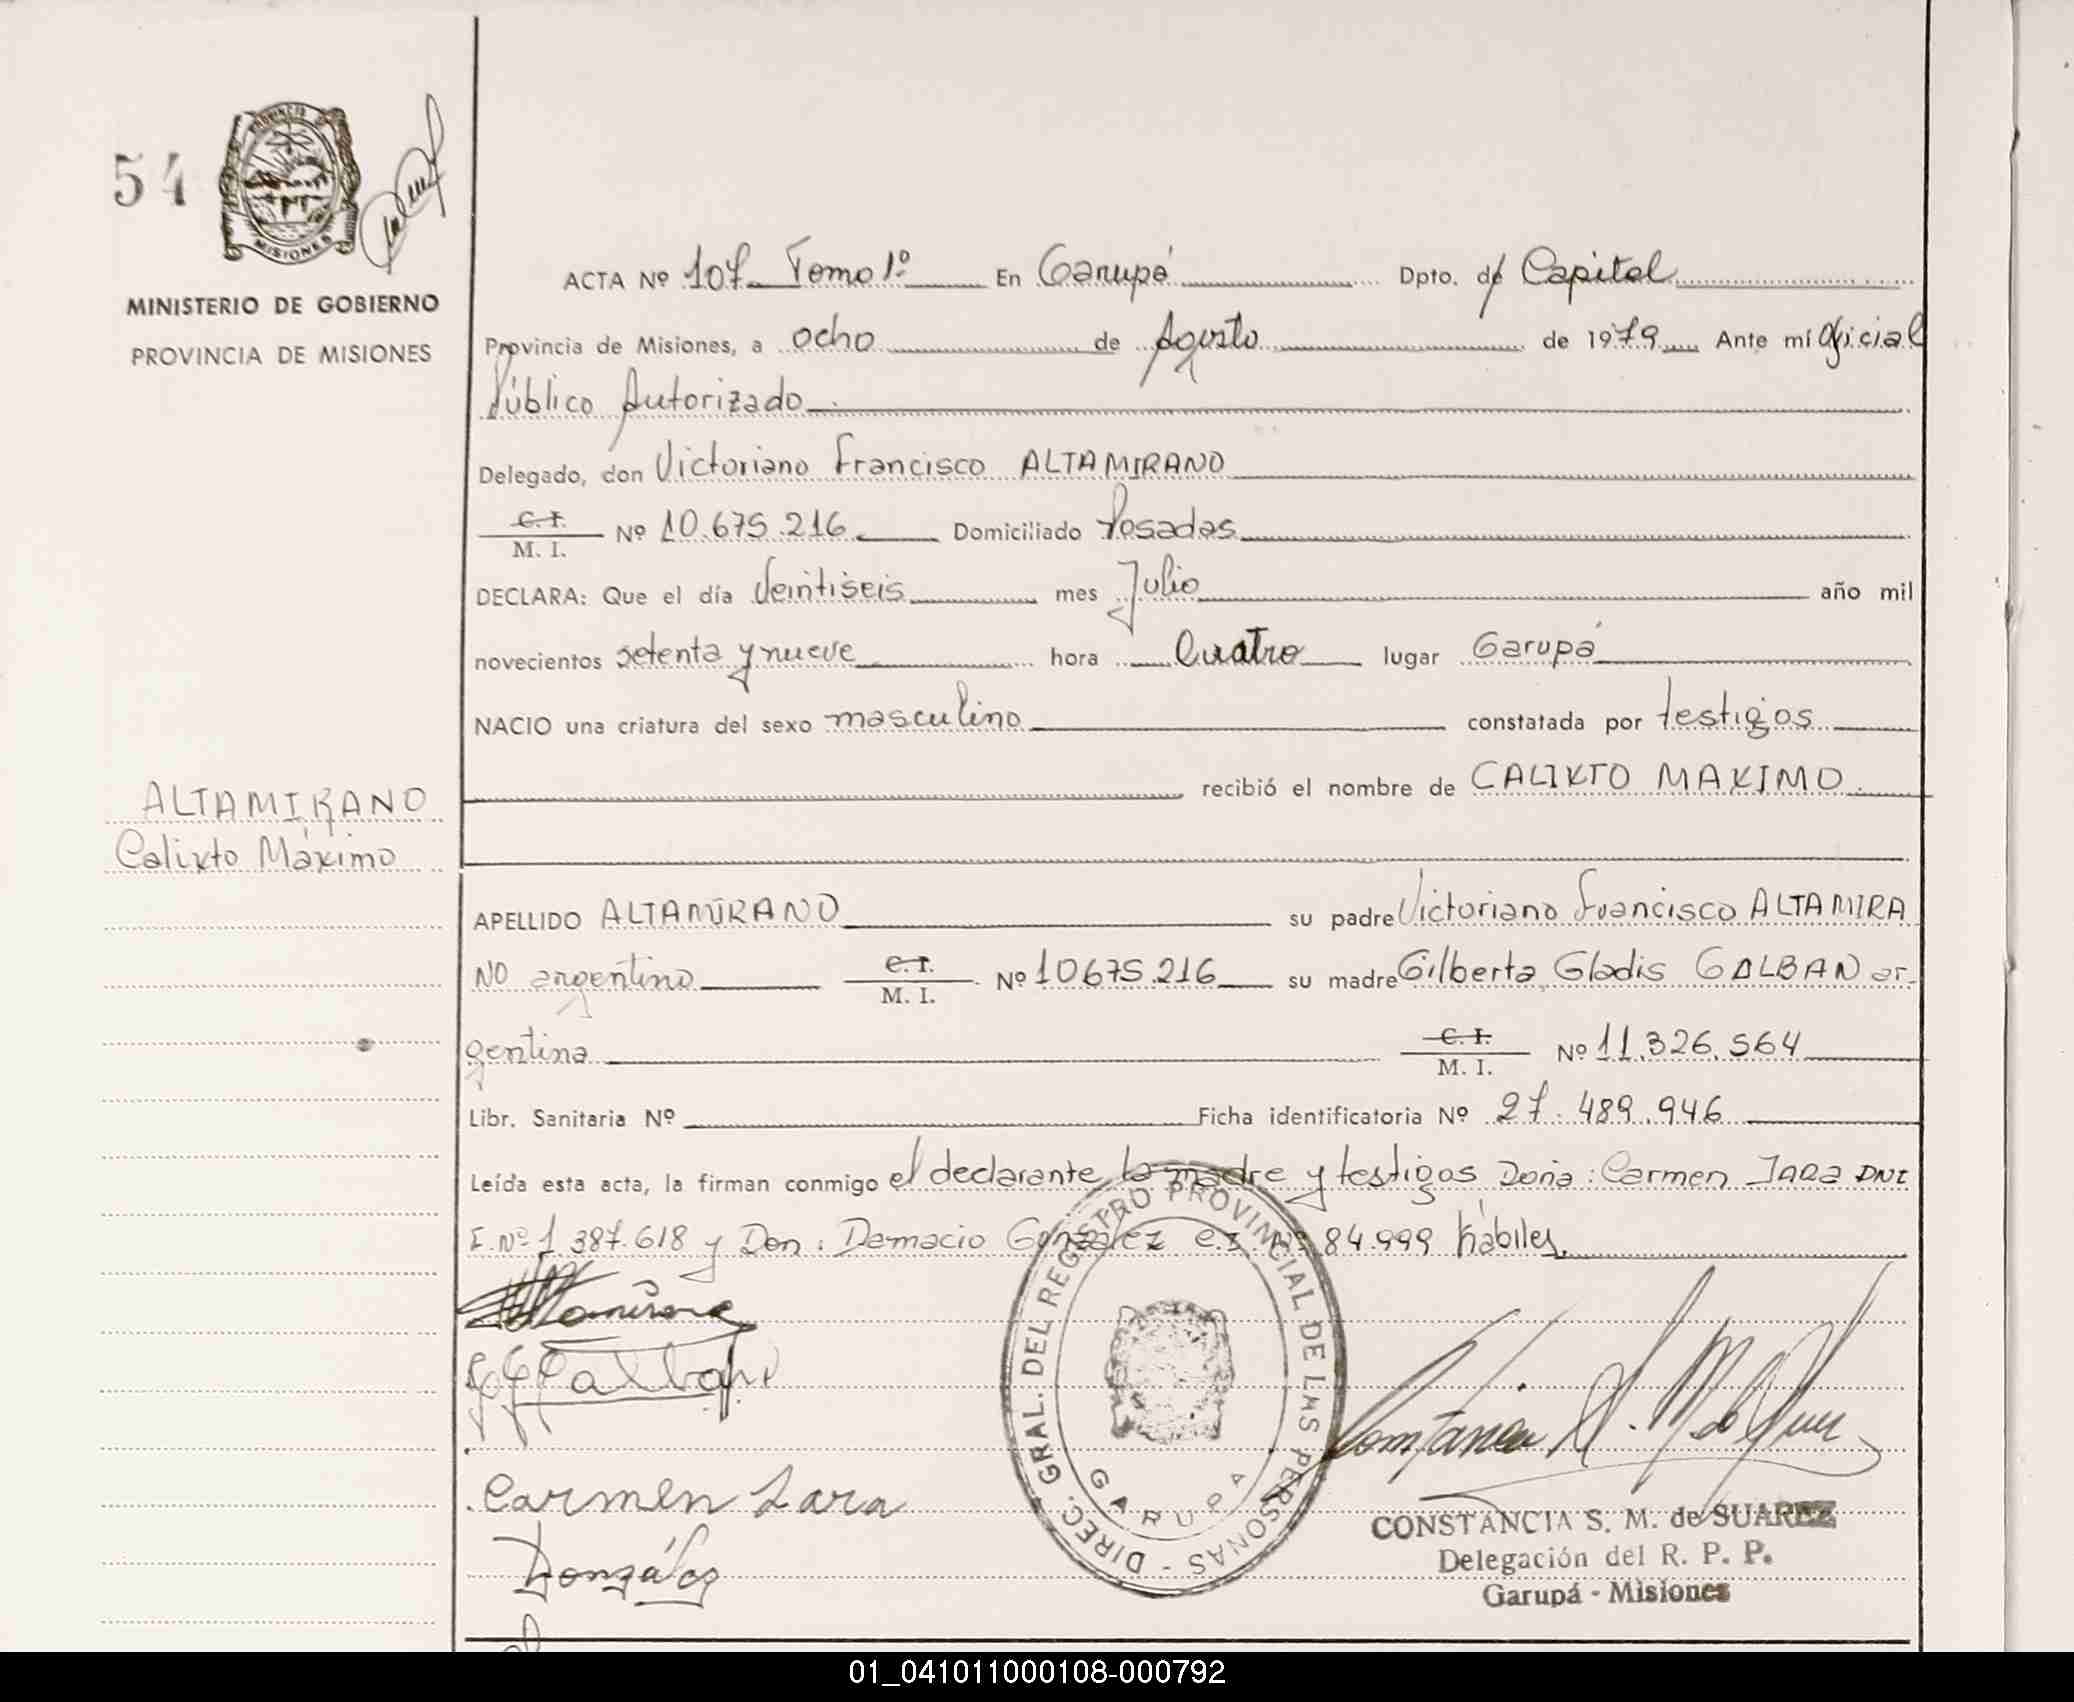 54
PROVINCIA
MISIONES
MINISTERIO DE GOBIERNO
PROVINCIA DE MISIONES
ACTA Nº 107 Tomo 1º En Garupá Dpto. de Capital
Provincia de Misiones, a ocho de Agosto de 1979 Ante mí Oficial
Público Autorizado
Delegado, don Victoriano Francisco ALTAMIRANO
C. I.
M. I. Nº 10.675.216 Domiciliado Posadas
DECLARA: Que el día Veintiseis mes Julio año mil
novecientos setenta y nueve hora Cuatro lugar Garupá
NACIO una criatura del sexo masculino constatada por testigos
recibió el nombre de CALIXTO MAXIMO
ALTAMIRANO
Calixto Máximo
APELLIDO ALTAMIRANO su padre Victoriano Francisco ALTAMIRA
NO argentino C. I. M. I. Nº 10675.216 su madre Gilberta Gladis GALBAN ar-
gentina C. I. M. I. Nº 11.326.564
Libr. Sanitaria Nº Ficha identificatoria Nº 27.489.946
Leída esta acta, la firman conmigo el declarante la madre y testigos Doña: Carmen JARA DNI
F. Nº 1.387.618 y Don: Damacio González C.I. Nº 84.999 hábiles.
Galban
Carmen Jara
González
DIREC. GRAL. DEL REGISTRO PROVINCIAL DE LAS PERSONAS -
GARUPA
CONSTANCIA S. M. de SUAREZ
Delegación del R. P. P.
Garupá - Misiones
01_041011000108-000792